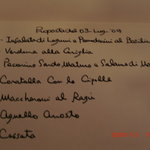 Proposta di 03 Lug. 09
- Insalata di Legumi e Pomodorini al Basilico
Verdura alla Griglia
Pecorino Sardo Maturo e Salame di
Coratella Con le Cipolle
Maccheroni al Ragù
Agnello Arrosto
Cassata